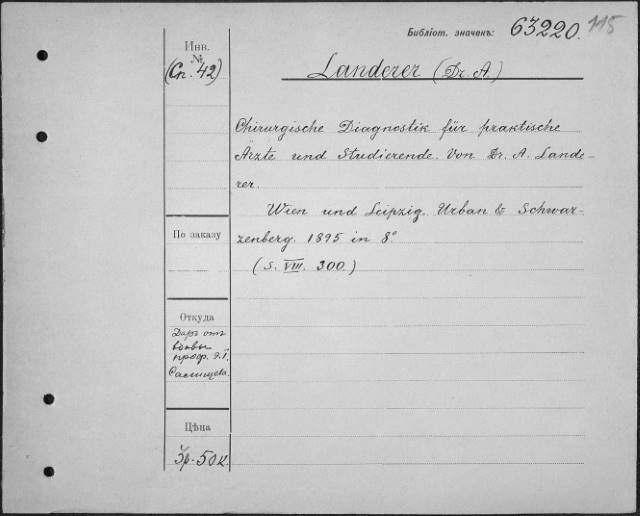 Библіот. значекъ: 63220. 115
Инв.
№
(Сп. 42)
Landerer (Dr. A.)
Chirurgische Diagnostik für praktische
Ärzte und Studierende. Von Dr. A. Lande-
rer.
Wien und Leipzig. Urban & Schwar-
zenberg. 1895 in 8°
(S. VIII. 300.)
По заказу
Откуда
Даръ отъ
вдовы
проф. Э.Г.
Салищева.
Цѣна
3р. 50к.